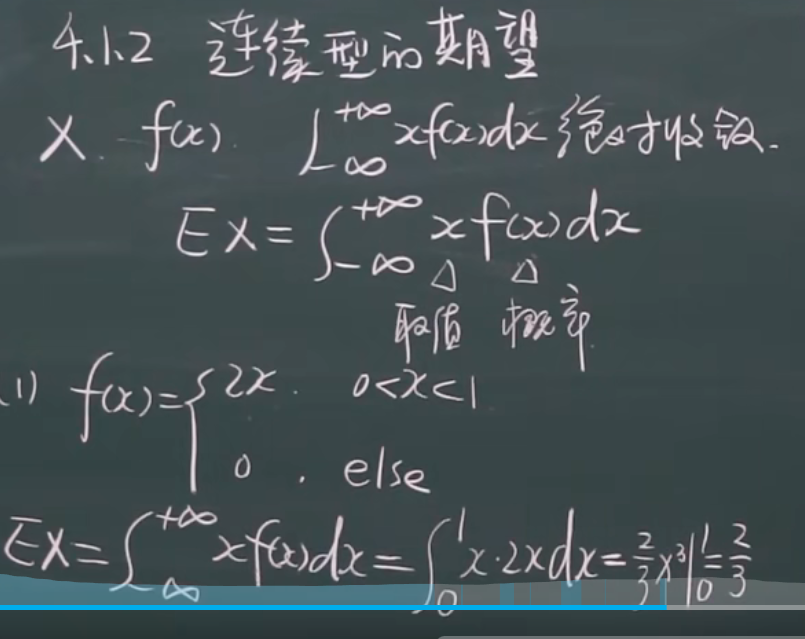 4.1.2 连续型的期望
X. f(x). ∫_{-∞}^{+∞} xf(x)dx 绝对收敛.
EX = ∫_{-∞}^{+∞} x f(x)dx
△ △
取值 概率.
(1) f(x) = { 2x. 0<x<1
0 . else
EX = ∫_{-∞}^{+∞} xf(x)dx = ∫_0^1 x·2xdx = 2/3 x³|_0^1 = 2/3